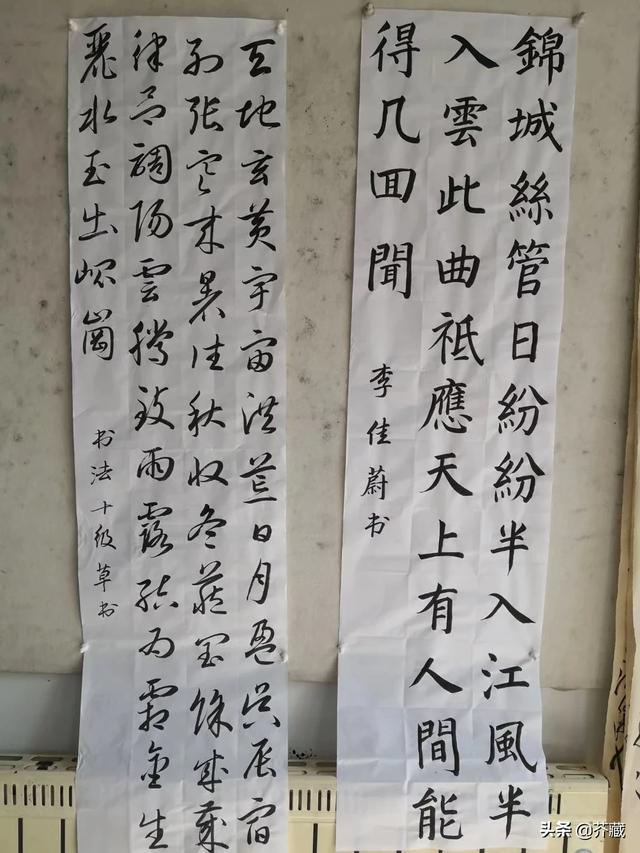 錦城絲管日紛紛半入江風半
入雲此曲祗應天上有人間能
得几囬聞
李佳蔚书
天地玄黄宇宙洪荒日月盈昃辰宿
列张寒来暑往秋收冬藏闰馀成岁
律吕調陽雲腾致雨露結为霜金生
麗水玉出崐崗
书法十级草书
头条 @芥藏